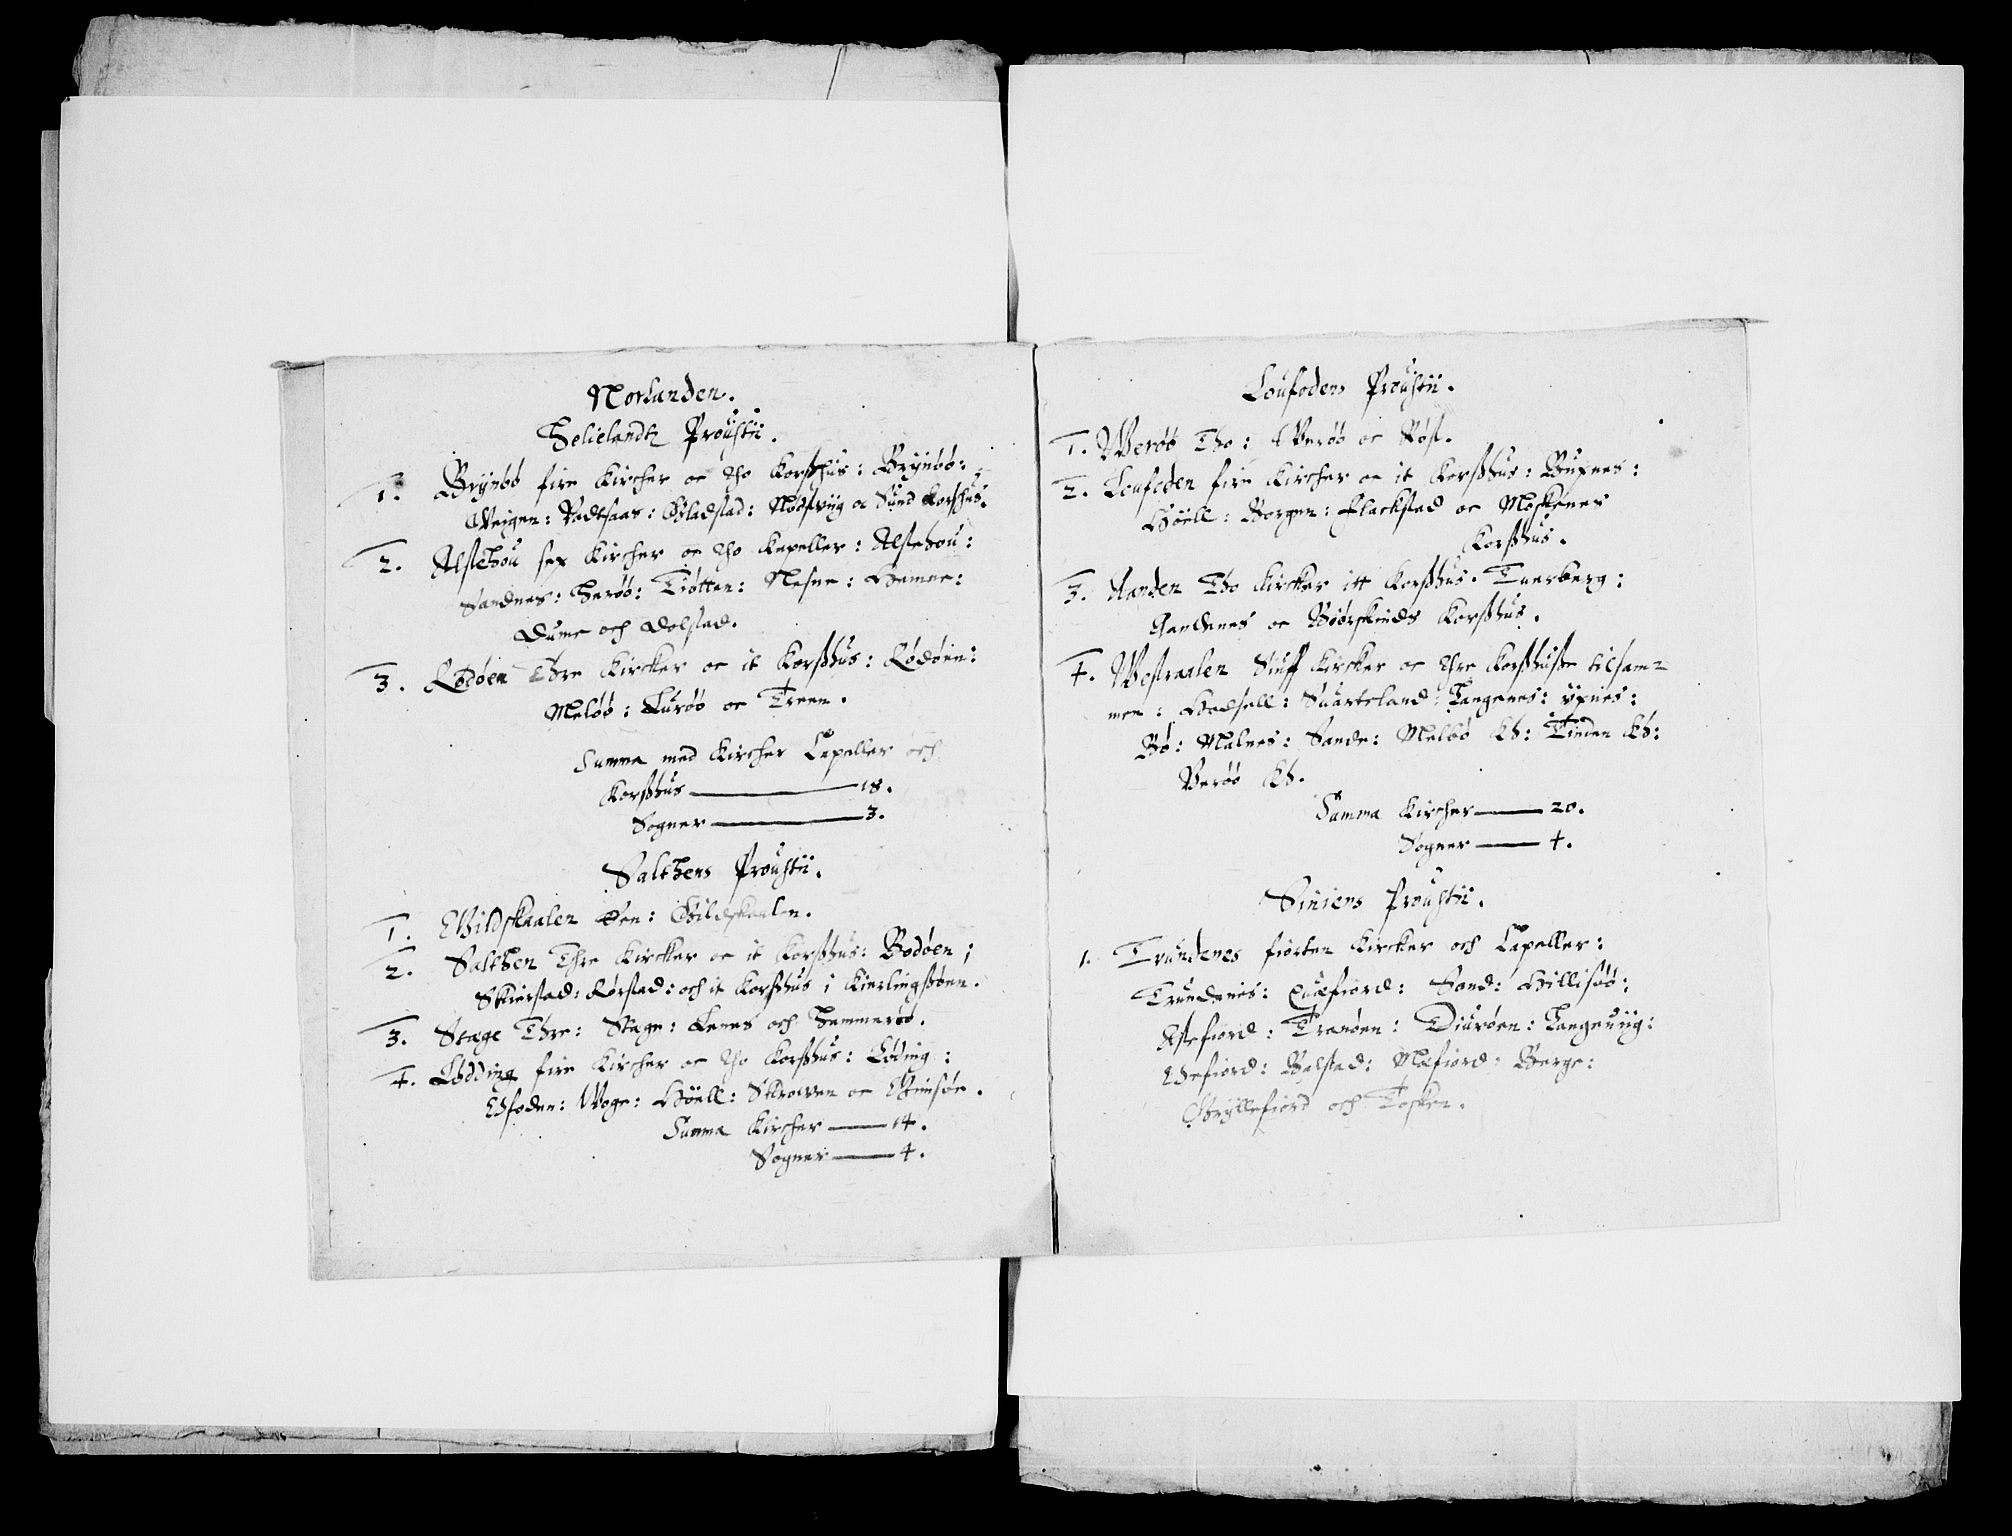 Norlanden.
Helielandtz Proustii.
1. Brÿnöö fire Kircher oc tho Korsshus: Brÿnöö:
Weigen: Vadtsaas: Gladstad: Nødtwiig oc Sund Korshus.
2. Alstehou sex Kircher oc tho Kapeller: Alstehou:
Sandnes: Herøö: Tiøtten: Nesne: Hemne:
Dume och Dolstad.
3. Rødøen Thre Kircker oc it Korsshus: Rødøen:
Meløö: Lurøö oc Treen.
Summa med Kircher Capeller och
Korsshus 18.
Sogner 3.
Salthens Proustii.
1. Gildskaalen Een: Gildskaalen.
2. Salthen Thre Kircker oc it Korsshus: Bodøen;
Skierstad: Rørstad: och it Korsshus i Kierlingssøen.
3. Stege Thre: Stege: Lenes och Hammerøö.
4. Lødding fire Kircher oc tho Korsshus: Løding:
Ofoden: Woge: Høell: Skrowen oc Gimsøe.
Summa Kircher 14.
Sogner 4.
Loufodens Proustii.
1. Werøö Tho: Werøö oc Røst.
2. Loufoden fire Kircher oc it Korsshus: Buxnes:
Høell: Borgen: Flackstad oc Moskenes
Korsshus.
3. Aanden Tho Kircker itt Korsshus. Tuerberg:
Aandenes oc Biørskinds Korsshus.
4. Westraalen Siuff Kircker oc thre Korsshusse tilsam=
men: Hadsell: Suarteland: Langenes: Ypnes:
Bø: Malnes: Sande: Melbö Kh: Tinden Kh:
Verøö Kh.
Summa Kircher 20.
Sogner 4.
Siniens Proustii.
1. Trundenes fiorten Kircker och Capeller:
Trundenis: Quefiord: Sand: Hillisøö:
Astefiord: Tranøen: Diurøen: Langeuiig:
Øefiord: Balstad: Mefiord: Berge:
Grÿllefiord och Tosken.